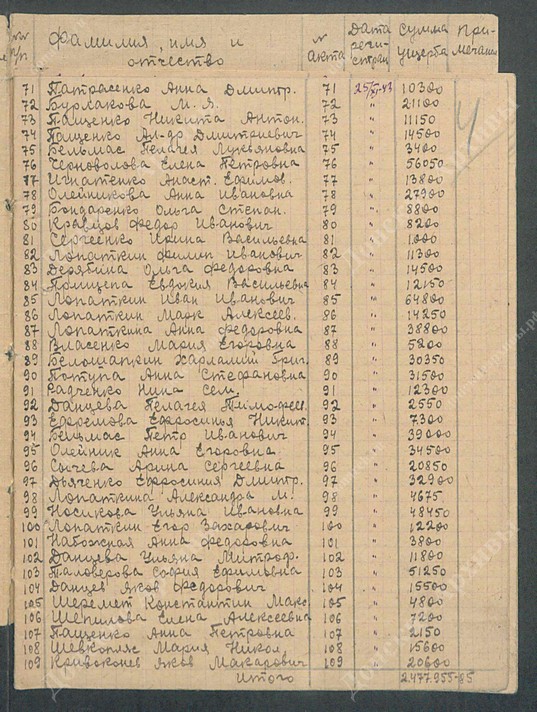 № п/п Фамилия, имя и отчество № акта Дата регистрац Сумма ущерба Примечание
71 Патрасенко Анна Дмитр. 71 25/X-43 10300
72 Бурлакова М. Я. 72 " 21100
73 Пащенко Никита Антон. 73 " 11150
74 Пащенко Ал-др Дмитриевич 74 " 14500
75 Бельмас Пелагея Лукьяновна 75 " 3400
76 Черноволова Елена Петровна 76 " 56050
77 Игнатенко Анаст. Ефимов. 77 " 13800
78 Олейникова Анна Ивановна 78 " 27900
79 Бондаренко Ольга Степан. 79 " 8800
80 Кравцов Федор Иванович 80 " 8200
81 Сергеенко Ирина Васильевна 81 " 1000
82 Лопаткин Филип Иванович 82 " 11300
83 Дерябина Ольга Федоровна 83 " 14500
84 Прищепа Евдокия Васильевна 84 " 12150
85 Лопаткин Иван Иванович 85 " 64800
86 Лопаткин Марк Алексеев. 86 " 14250
87 Лопаткина Анна Федоровна 87 " 38800
88 Власенко Мария Егоровна 88 " 5200
89 Белошапкин Харлампий Григ. 89 " 30350
90 Потупа Анна Стефановна 90 " 31500
91 Радченко Нина Сем. 91 " 12300
92 Данцева Пелагея Тимофеев. 92 " 2550
93 Ефремова Ефросинья Никит. 93 " 7300
94 Бельмас Петр Иванович 94 " 39000
95 Олейник Анна Егоровна 95 " 34500
96 Сычева Арина Сергеевна 96 " 20850
97 Дьяченко Ефросиния Дмитр. 97 " 32900
98 Лопаткина Александра М. 98 " 4675
99 Носикова Ульяна Ивановна 99 " 48450
100 Лопаткин Егор Захарович 100 " 12200
101 Набожная Анна Федоровна 101 " 3800
102 Данцева Ульяна Митроф. 102 " 11800
103 Паловерова София Ефимовна 103 " 51250
104 Данцев Яков Федорович 104 " 15500
105 Шеремет Константин Макс. 105 " 4800
106 Шепилова Елена Алексеевна 106 " 7200
107 Пащенко Анна Петровна 107 " 2150
108 Шевкопляс Мария Никол 108 " 15600
109 Кривоконев Яков Макарович 109 " 20600
Итого 2.477.955-85